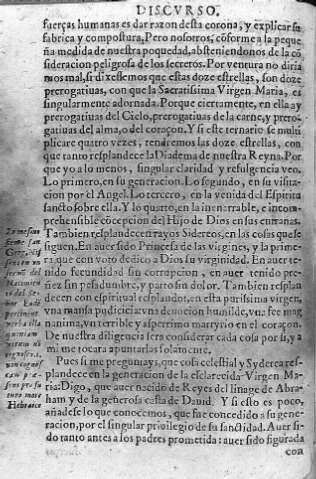 DISCVRSO,
fuerças humanas es dar razon desta corona, y explicar su
fabrica y compostura, Pero nosotros, cõforme a la peque
ña medida de nuestra poquedad, absteniendonos de la cõ
sideracion peligrosa de los secretos. Por ventura no diria
mos mal, si dixessemos que estas doze estrellas, son doze
prerogatiuas, con que la Sacratissima Virgen Maria, es
singularmente adornada. Porque ciertamente, en ella ay
prerogatiuas del Cielo, prerogatiuas de la carne, y prero-
gatiuas del alma, o del coraçon. Y si este ternario se multi
plicare quatro vezes, tendremos las doze estrellas, con
que tanto resplandece la Diadema de nuestra Reyna. Por
que yo a lo menos, singular claridad y refulgencia veo.
Lo primero, en su generacion. Lo segundo, en su visita
cion por el Angel. Lo tercero, en la venida del Espiritu
sancto sobre ella. Y lo quarto, en la inenarrable, e incom-
prehensible cõcepcion del Hijo de Dios en sus entrañas.
Tambien resplandecen rayos Sidereos, en las cosas que se
siguen. En auer sido Princesa de las virgines, y la prime-
ra que con voto dedico a Dios su virginidad. En auer te-
nido fecundidad sin corrupcion, en auer tenido pre-
ñez sin pesadumbre, y parto sin dolor. Tambien resplan
decen con espiritual resplandor, en esta purissima virgen,
vna mansa pudicicia, vna deuocion humilde, vna fee mag
nanima, vn terrible y asperrimo martyrio en el coraçon.
De nuestra diligencia sera considerar cada cosa por si, y a
mi me tocara apuntarlas solamente.
Pues si me preguntays, que cosa celestial y Syderea res-
plandece en la generacion de la esclarecida Virgen Ma-
ria: Digo, que auer nacido de Reyes del linage de Abra-
ham y de la generosa casta de Dauid. Y si esto es poco,
añadese lo que conocemos, que fue concedido a su gene-
racion, por el singular priuilegio de su sanctidad. Auer si-
do tanto antes a los padres prometida: auer sido figurada
con
Hebraeo